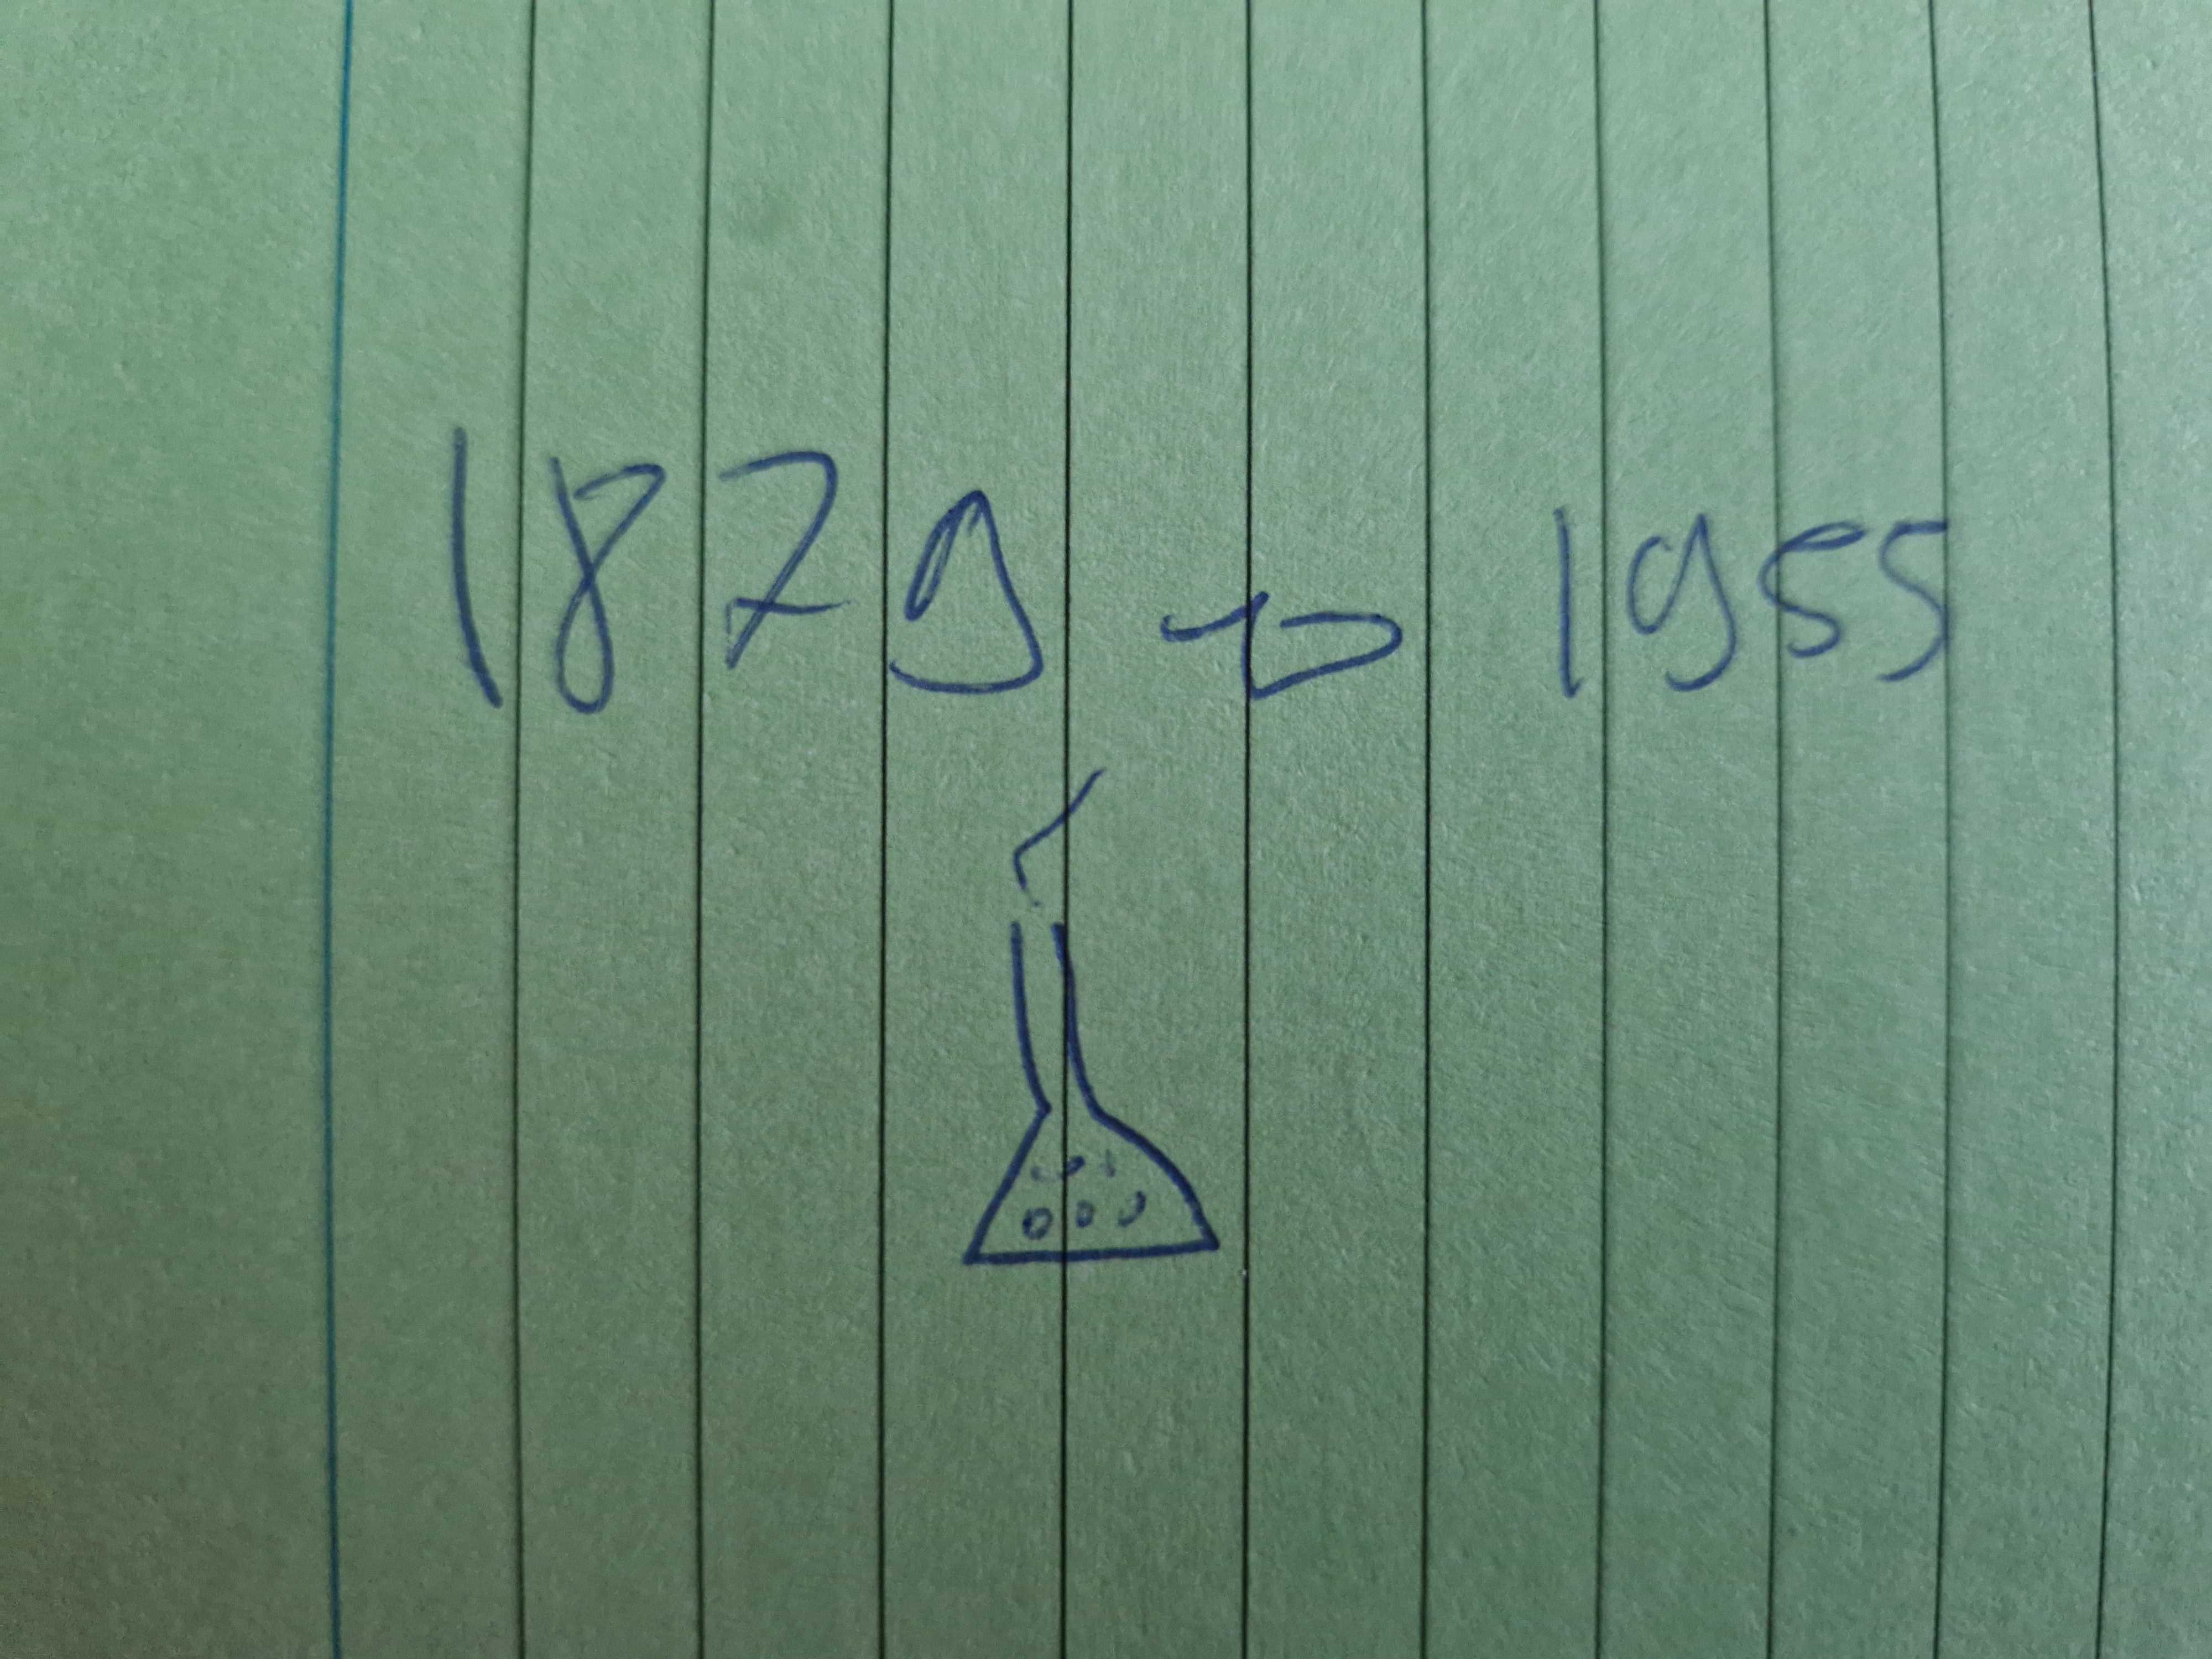 1879 → 1955